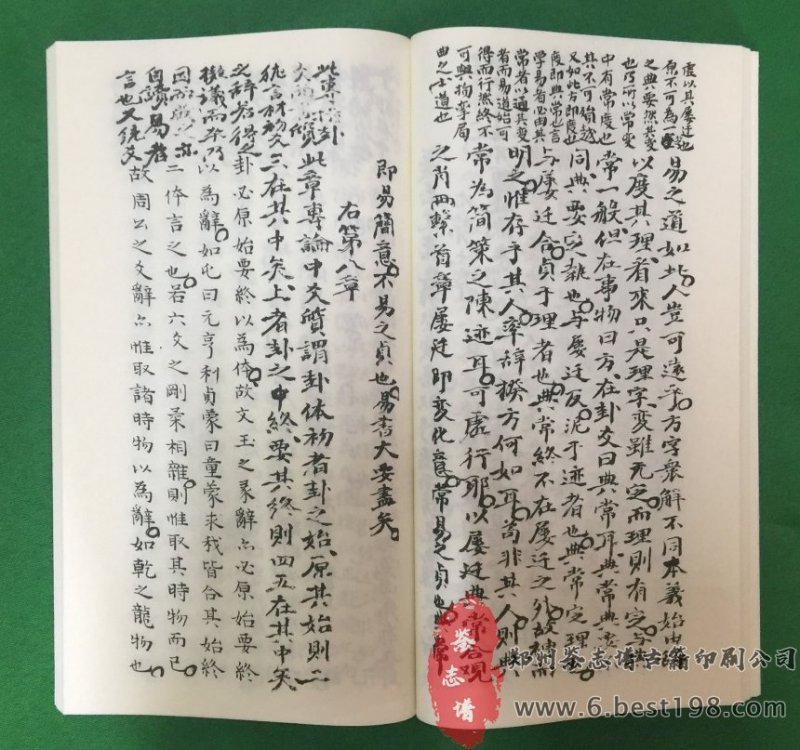 虛以其屢迁也
原不可為一定
之典要然其变
也乃所以常变
中有常度也
其不可踰越
又如此方即度也
度即典常也言
学易者必由其
常者以通其变
者而易道始可
得而行然終不
可與拘牽局
曲之士道也
易之道如此人豈可遠乎方字衆解不同本義始由辞
以度其理看來只是理字变雖无定而理則有定与
常一般但在事物曰方在卦爻曰典常耳典常典要
同典要交雜也与屢迁反泥于迹者也典常定理
与屢迁合貞于理者也典常終不在屢迁之外故撰而
明之惟存乎其人率辞揆方何如耳苟非其人則典
常為简策之陳迹耳可虛行耶以屢迁典常合現
之首兩繫首章屢迁即变化意常易之貞也典常
即易簡意不易之貞也易書大要盡矣
右第八章
此專論卦
爻
統言初爻
之辞者得之
擬議而卒乃
因而成之亦
自讀易者
言也又繞爻
此章專論中爻質謂卦体初者卦之始原其始則二
三在其中矣上者卦之中終要其終則四五在其中矣
卦必原始要終以為体故文王之彖辭亦必原始要終
以為辭如屯曰元亨利貞蒙曰童蒙求我皆合其始終
二体言之也若六爻之剛柔相雜則惟取其時物而已
故周公之爻辭亦惟取諸時物以為辭如乾之龍物也
鉴志谱
郑州鉴志谱古籍印刷公司
www.6.best198.com